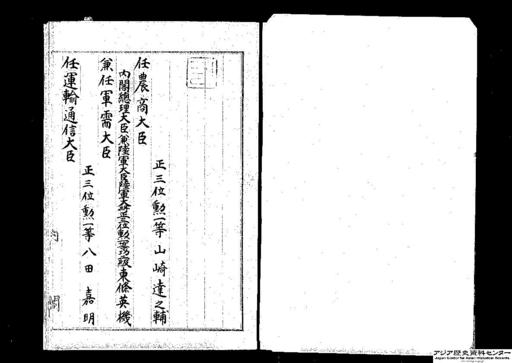 任農商大臣
正三位勲一等山崎達之輔
内閣總理大臣兼陸軍大臣陸軍大將正三位勲一等功二級東條英機
兼任軍需大臣
正三位勲一等八田嘉明
任運輸通信大臣
内閣
アジア歴史資料センター
Japan Center for Asian Historical Records